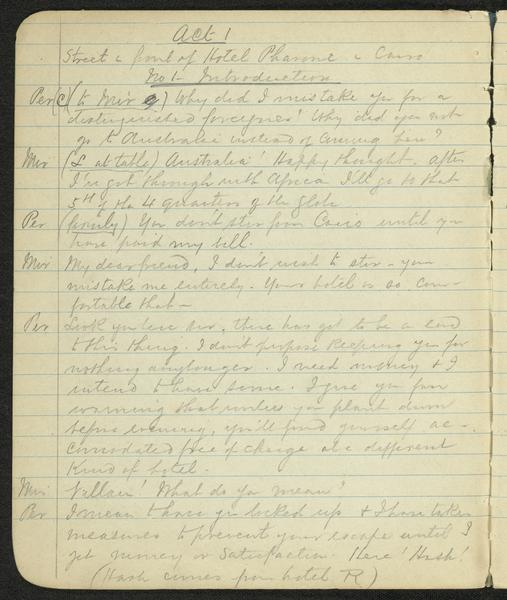 Act 1
Street in front of Hotel Pharone in Cairo
No 1 - Introduction
Per (C) (to Mir) Why did I mistake you for a
distinguished foreigner! Why did you not
go to Australia instead of coming here?
Mir (L at table) Australia! Happy thought. After
I've got through with Africa I'll go to that
5th of the 4 quarters of the globe
Per (firmly) You don't stir from Cairo until you
have paid my bill.
Mir My dear friend, I don't wish to stir - you
mistake me entirely. Your hotel is so com-
fortable that -
Per Look you here sir, there has got to be a end
to this thing. I don't purpose keeping you for
nothing any longer. I need money & I
intend to have some. I give you fair
warning that unless you plank down
before evening, you'll find yourself ac-
comodated free of charge at a different
kind of hotel.
Mir Villain! What do you mean?
Per I mean to have you locked up & I have taken
measures to prevent your escape until I
get money or satisfaction. Here! Hash!
(Hash comes from hotel R)